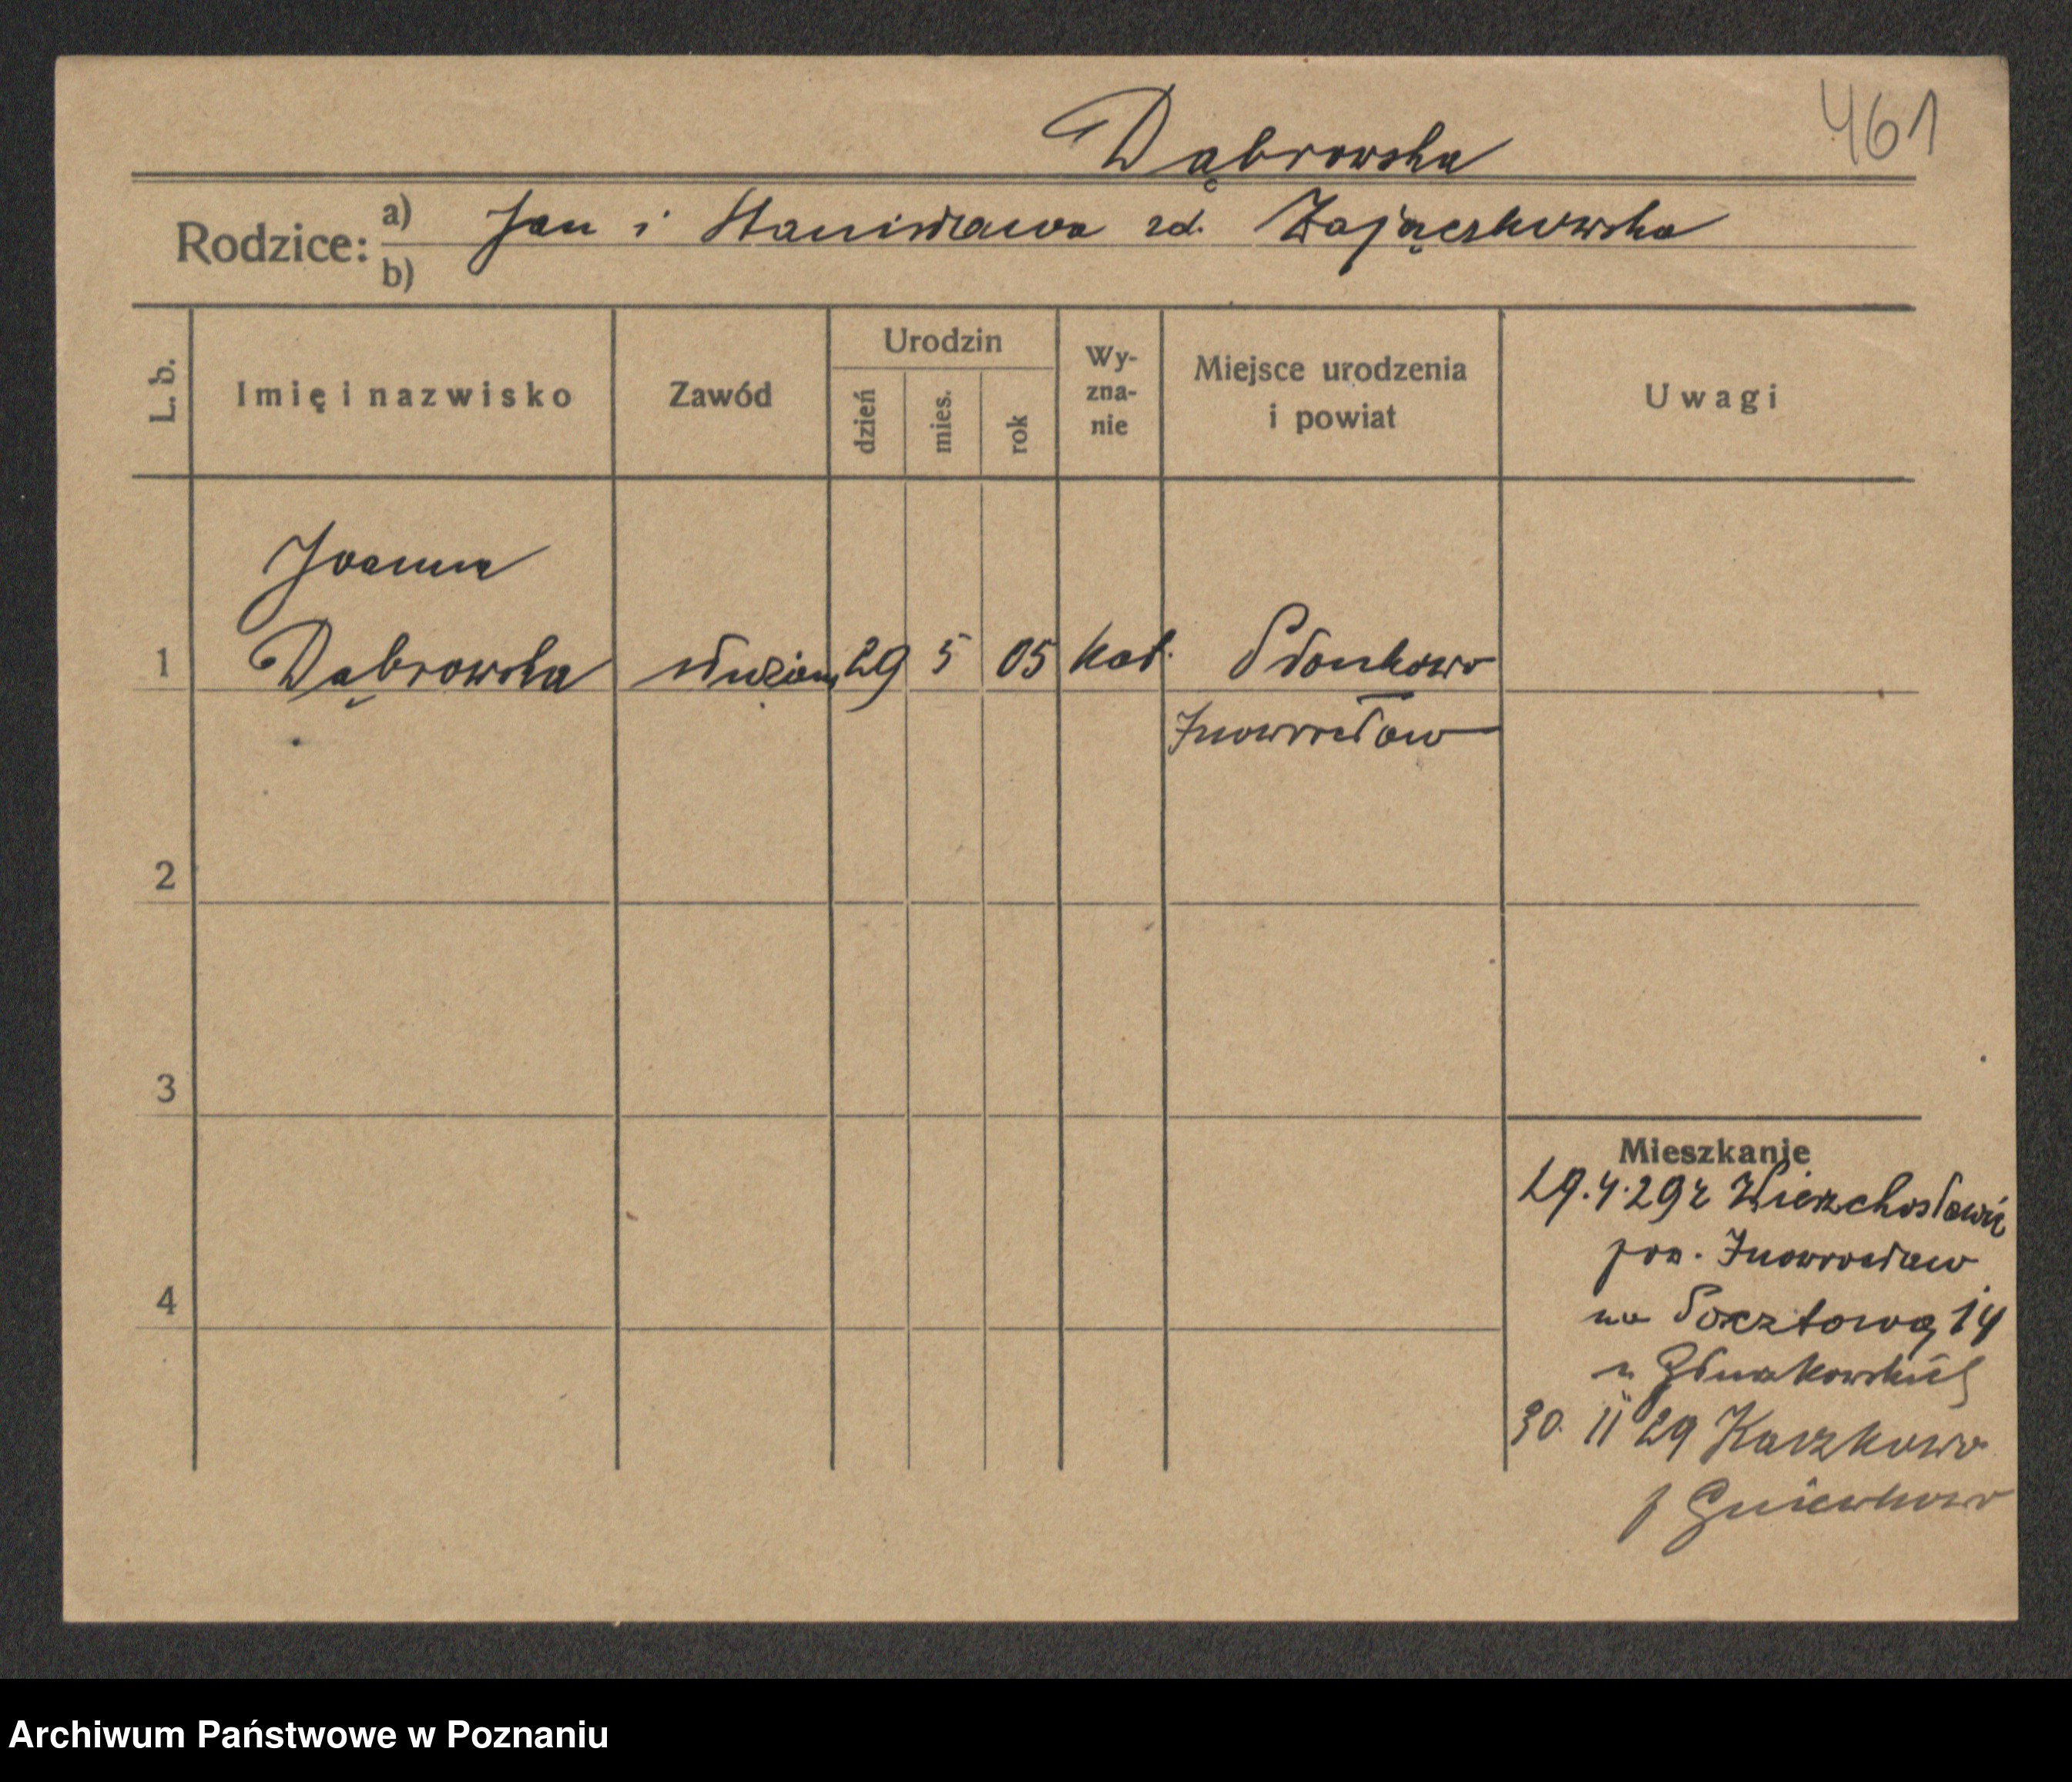 461
Dąbrowska
Rodzice: a) Jan i Stanisława zd. Zajączkowska
b)
L. b. Imię i nazwisko Zawód Urodzin dzień mies. rok Wyznanie Miejsce urodzenia i powiat Uwagi
Joanna
1 Dąbrowska służąca 29 5 05 kat. Słonkowo
Inowrocław
2
3
4
Mieszkanie
29.4.29 z Wierzchosławic
pow. Inowrocław
na Pocztową 14
u
30. 11 29 Kaczkowo
p Gniewkowo
Archiwum Państwowe w Poznaniu